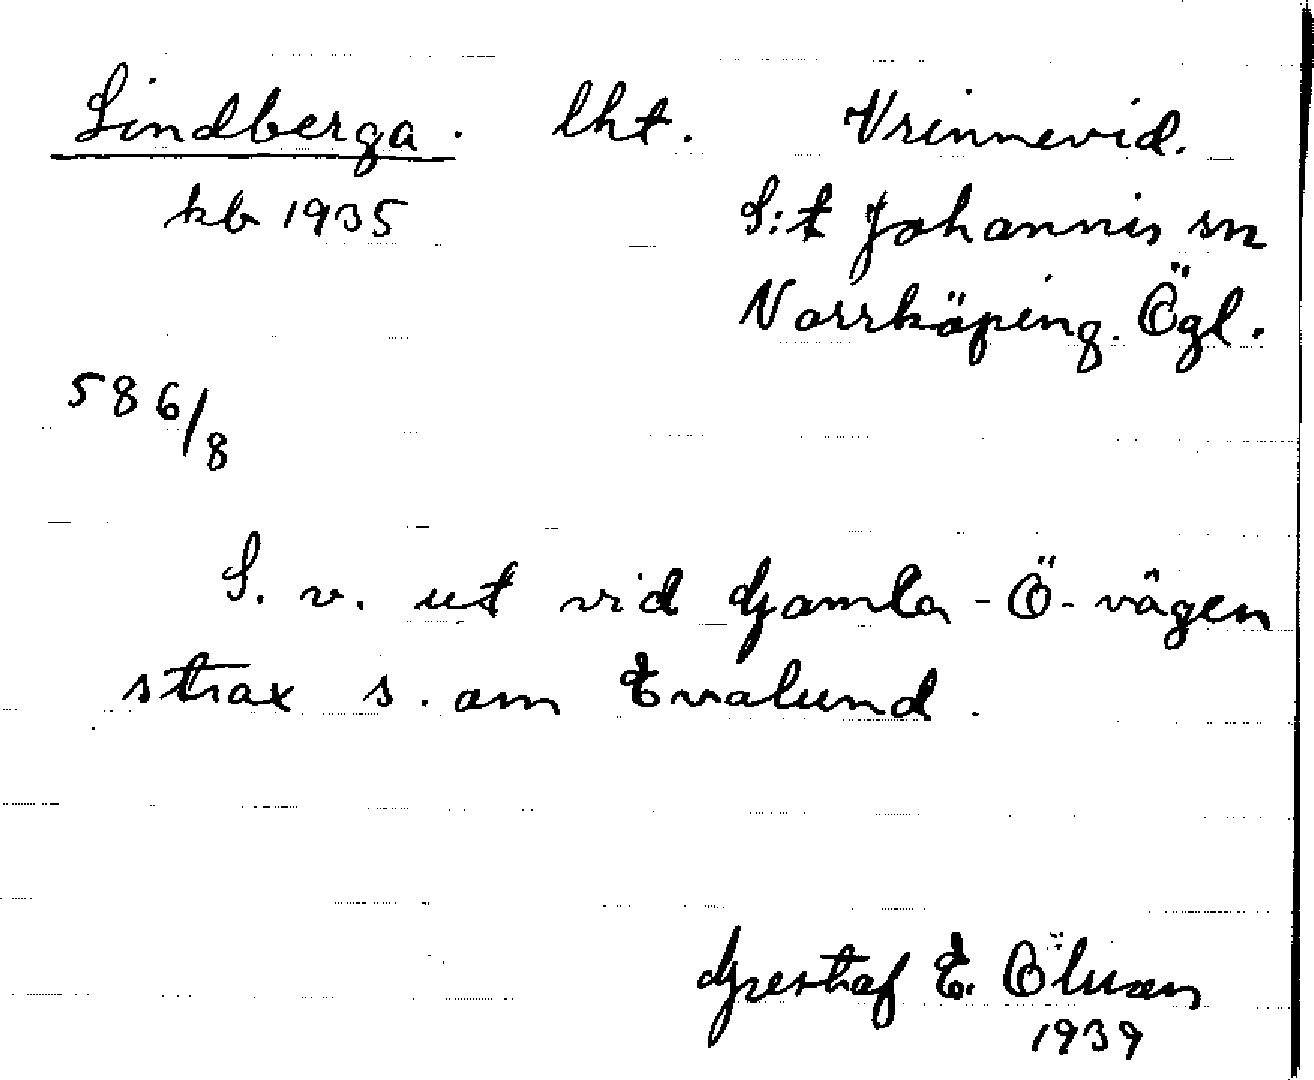 Lindberga. lht. Vrinnevid.
kb 1935 S:t Johannis sn
Norrköping. Ögl.
586/8
S. v. ut vid Gamla-Ö-vägen
strax s. om Evalund.
Gustaf E. Ölusen
1939